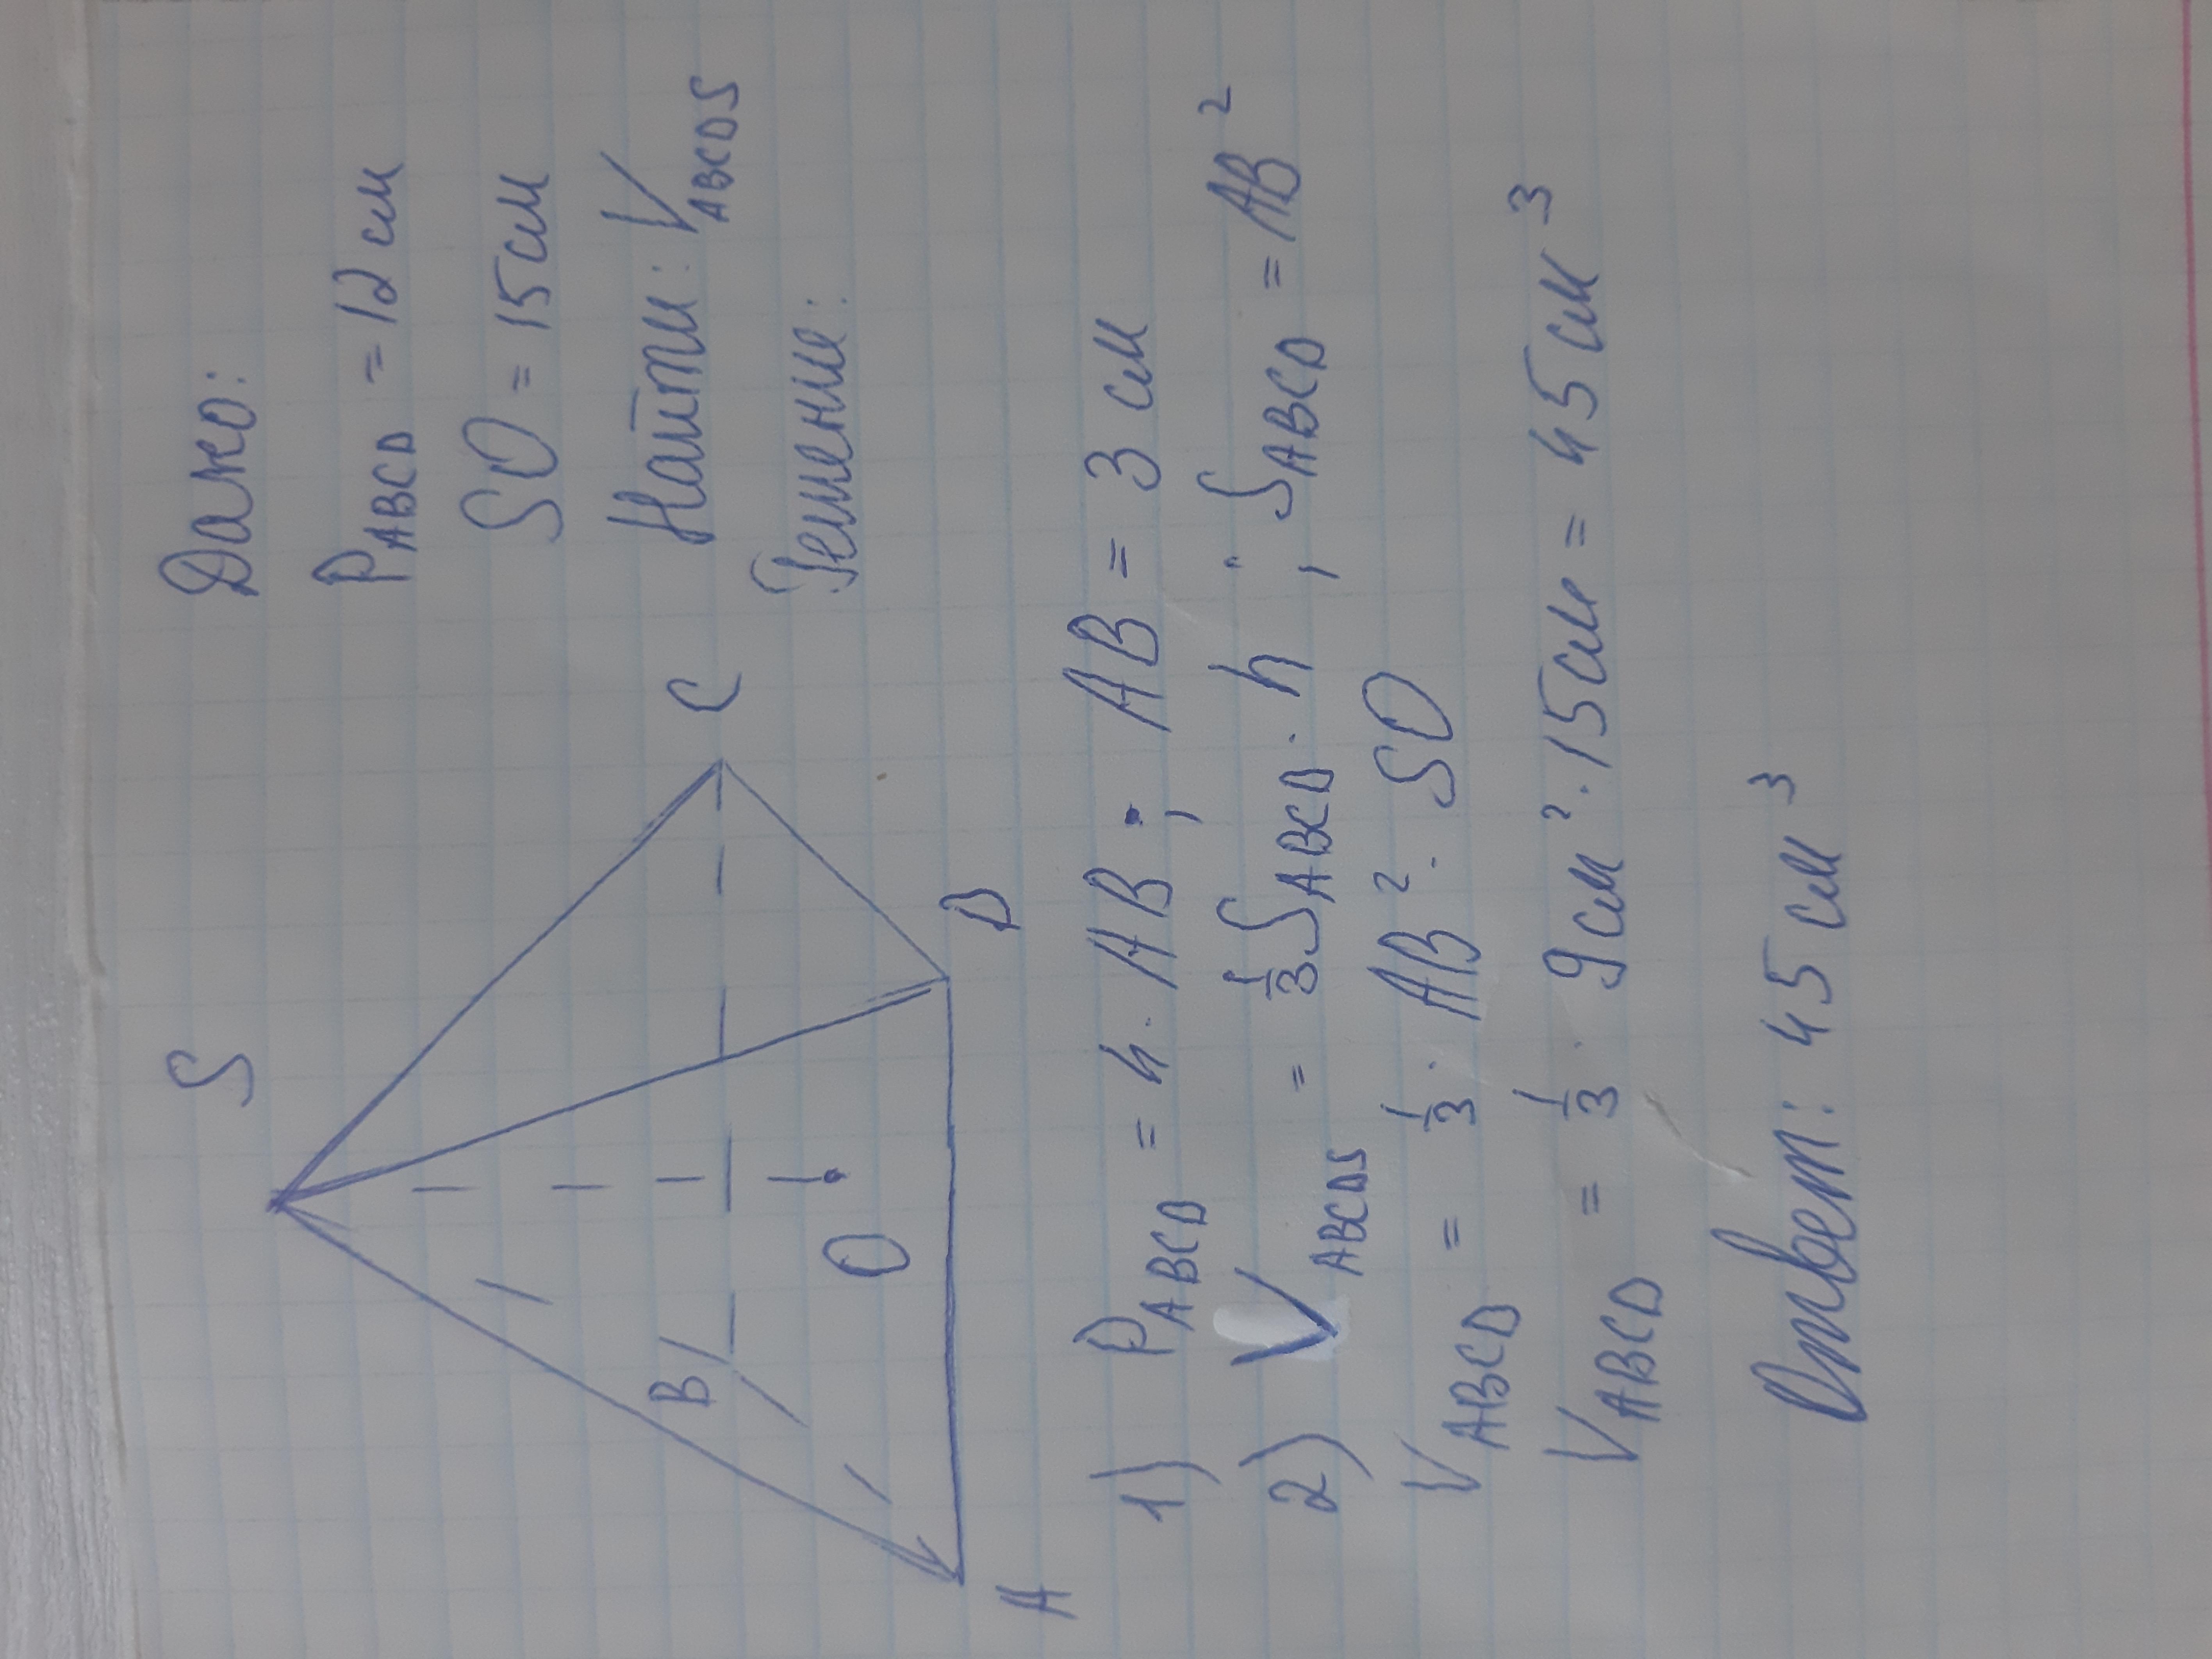 S
Дано:
P_ABCD = 12 см
SO = 15 см
Найти: V_ABCDS
Решение:
B
C
O
A
D
1) P_ABCD = 4 · AB ; AB = 3 см
2) V_ABCDS = 1/3 S_ABCD · h ; S_ABCD = AB²
V_ABCD = 1/3 · AB² · SO
V_ABCD = 1/3 · 9 см² · 15 см = 45 см³
Ответ: 45 см³